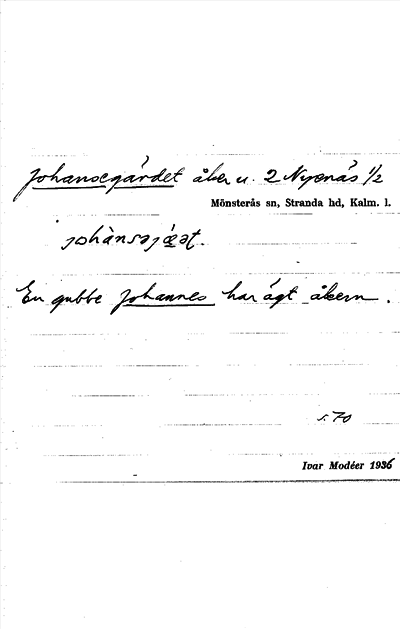 Johansegärdet åker u. 2 Nynäs 1/2
Mönsterås sn, Stranda hd, Kalm. l.
En gubbe Johannes har ägt åkern.
s. 70
Ivar Modéer 1936